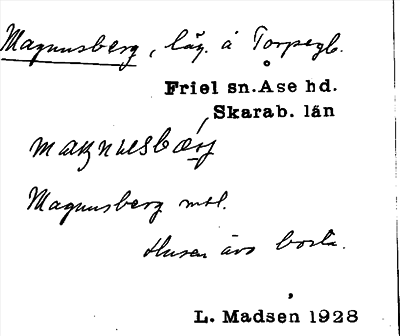 Magnusberg, läg. å Torpegb.
Friel sn. Åse hd.
Skarab. län
maŋnusbærj
Magnusberg mtl.
Husen äro borta.
L. Madsen 1928